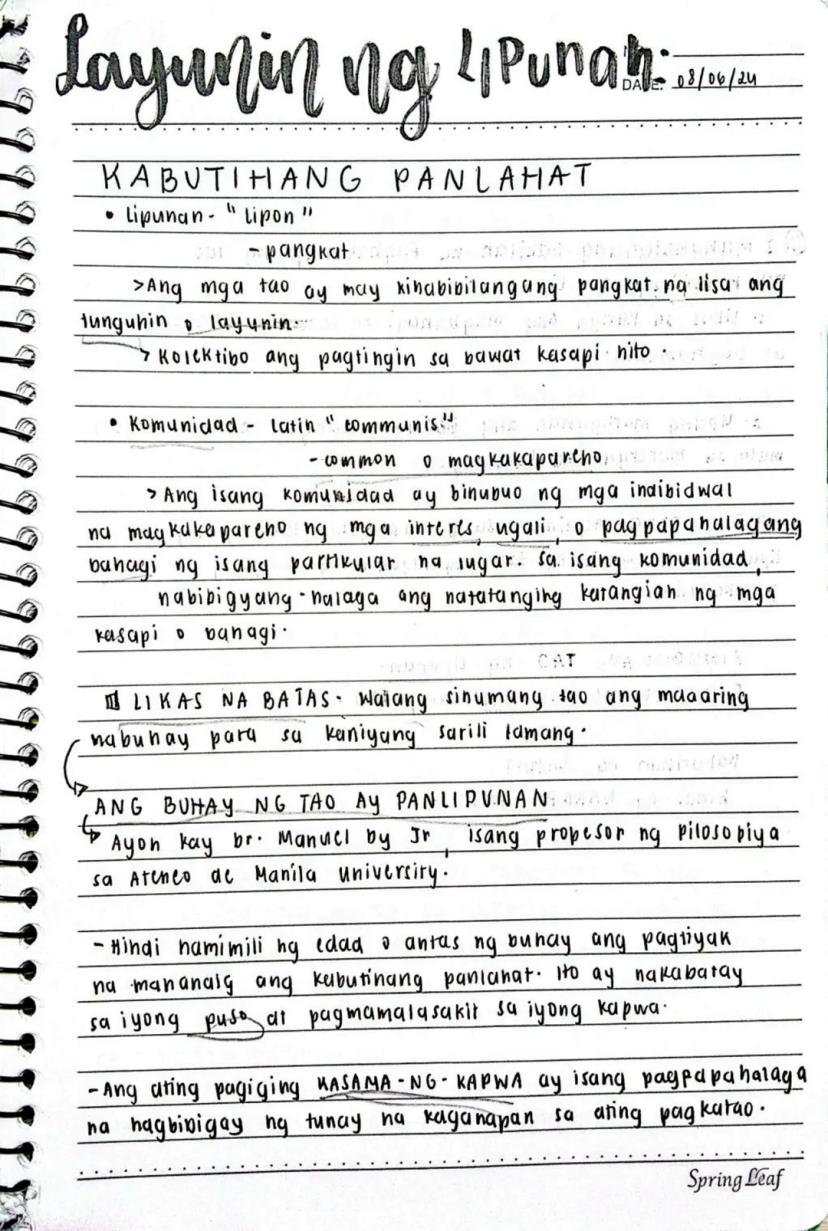 Layunin ng Lipunan
DATE: 08/06/24
KABUTIHANG PANLAHAT
• Lipunan - "lipon"
- pangkat
>Ang mga tao ay may kinabibilangang pangkat na iisa ang
tunguhin o layunin.
> Kolektibo ang pagtingin sa bawat kasapi nito.
• Komunidad - latin "communis"
- common o magkakapareho
> Ang isang komunidad ay binubuo ng mga indibidwal
na magkakapareho ng mga interes, ugali, o pagpapahalagang
bahagi ng isang partikular na lugar. sa isang komunidad,
nabibigyang-halaga ang natatanging katangian ng mga
kasapi o bahagi.
LIKAS NA BATAS- Walang sinumang tao ang maaaring
mabuhay para sa kaniyang sarili lamang.
ANG BUHAY NG TAO AY PANLIPUNAN
Ayon kay Dr. Manuel Dy Jr, isang propesor ng pilosopiya
sa Ateneo de Manila University.
-Hindi namimili ng edad o antas ng buhay ang pagtiyak
na mananaig ang kabutihang panlahat. Ito ay nakabatay
sa iyong puso at pagmamalasakit sa iyong kapwa.
-Ang ating pagiging KASAMA-NG-KAPWA ay isang pagpapahalaga
na nagbibigay ng tunay na kaganapan sa ating pagkatao.
Spring Leaf